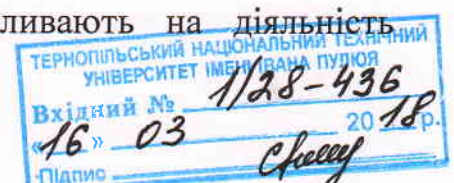 ливають на діяльність
ТЕРНОПІЛЬСЬКИЙ НАЦІОНАЛЬНИЙ ТЕХНІЧНИЙ
УНІВЕРСИТЕТ ІМЕНІ ІВАНА ПУЛЮЯ
Вхідний № 1/28-436
«16» 03 2018р.
Підпис